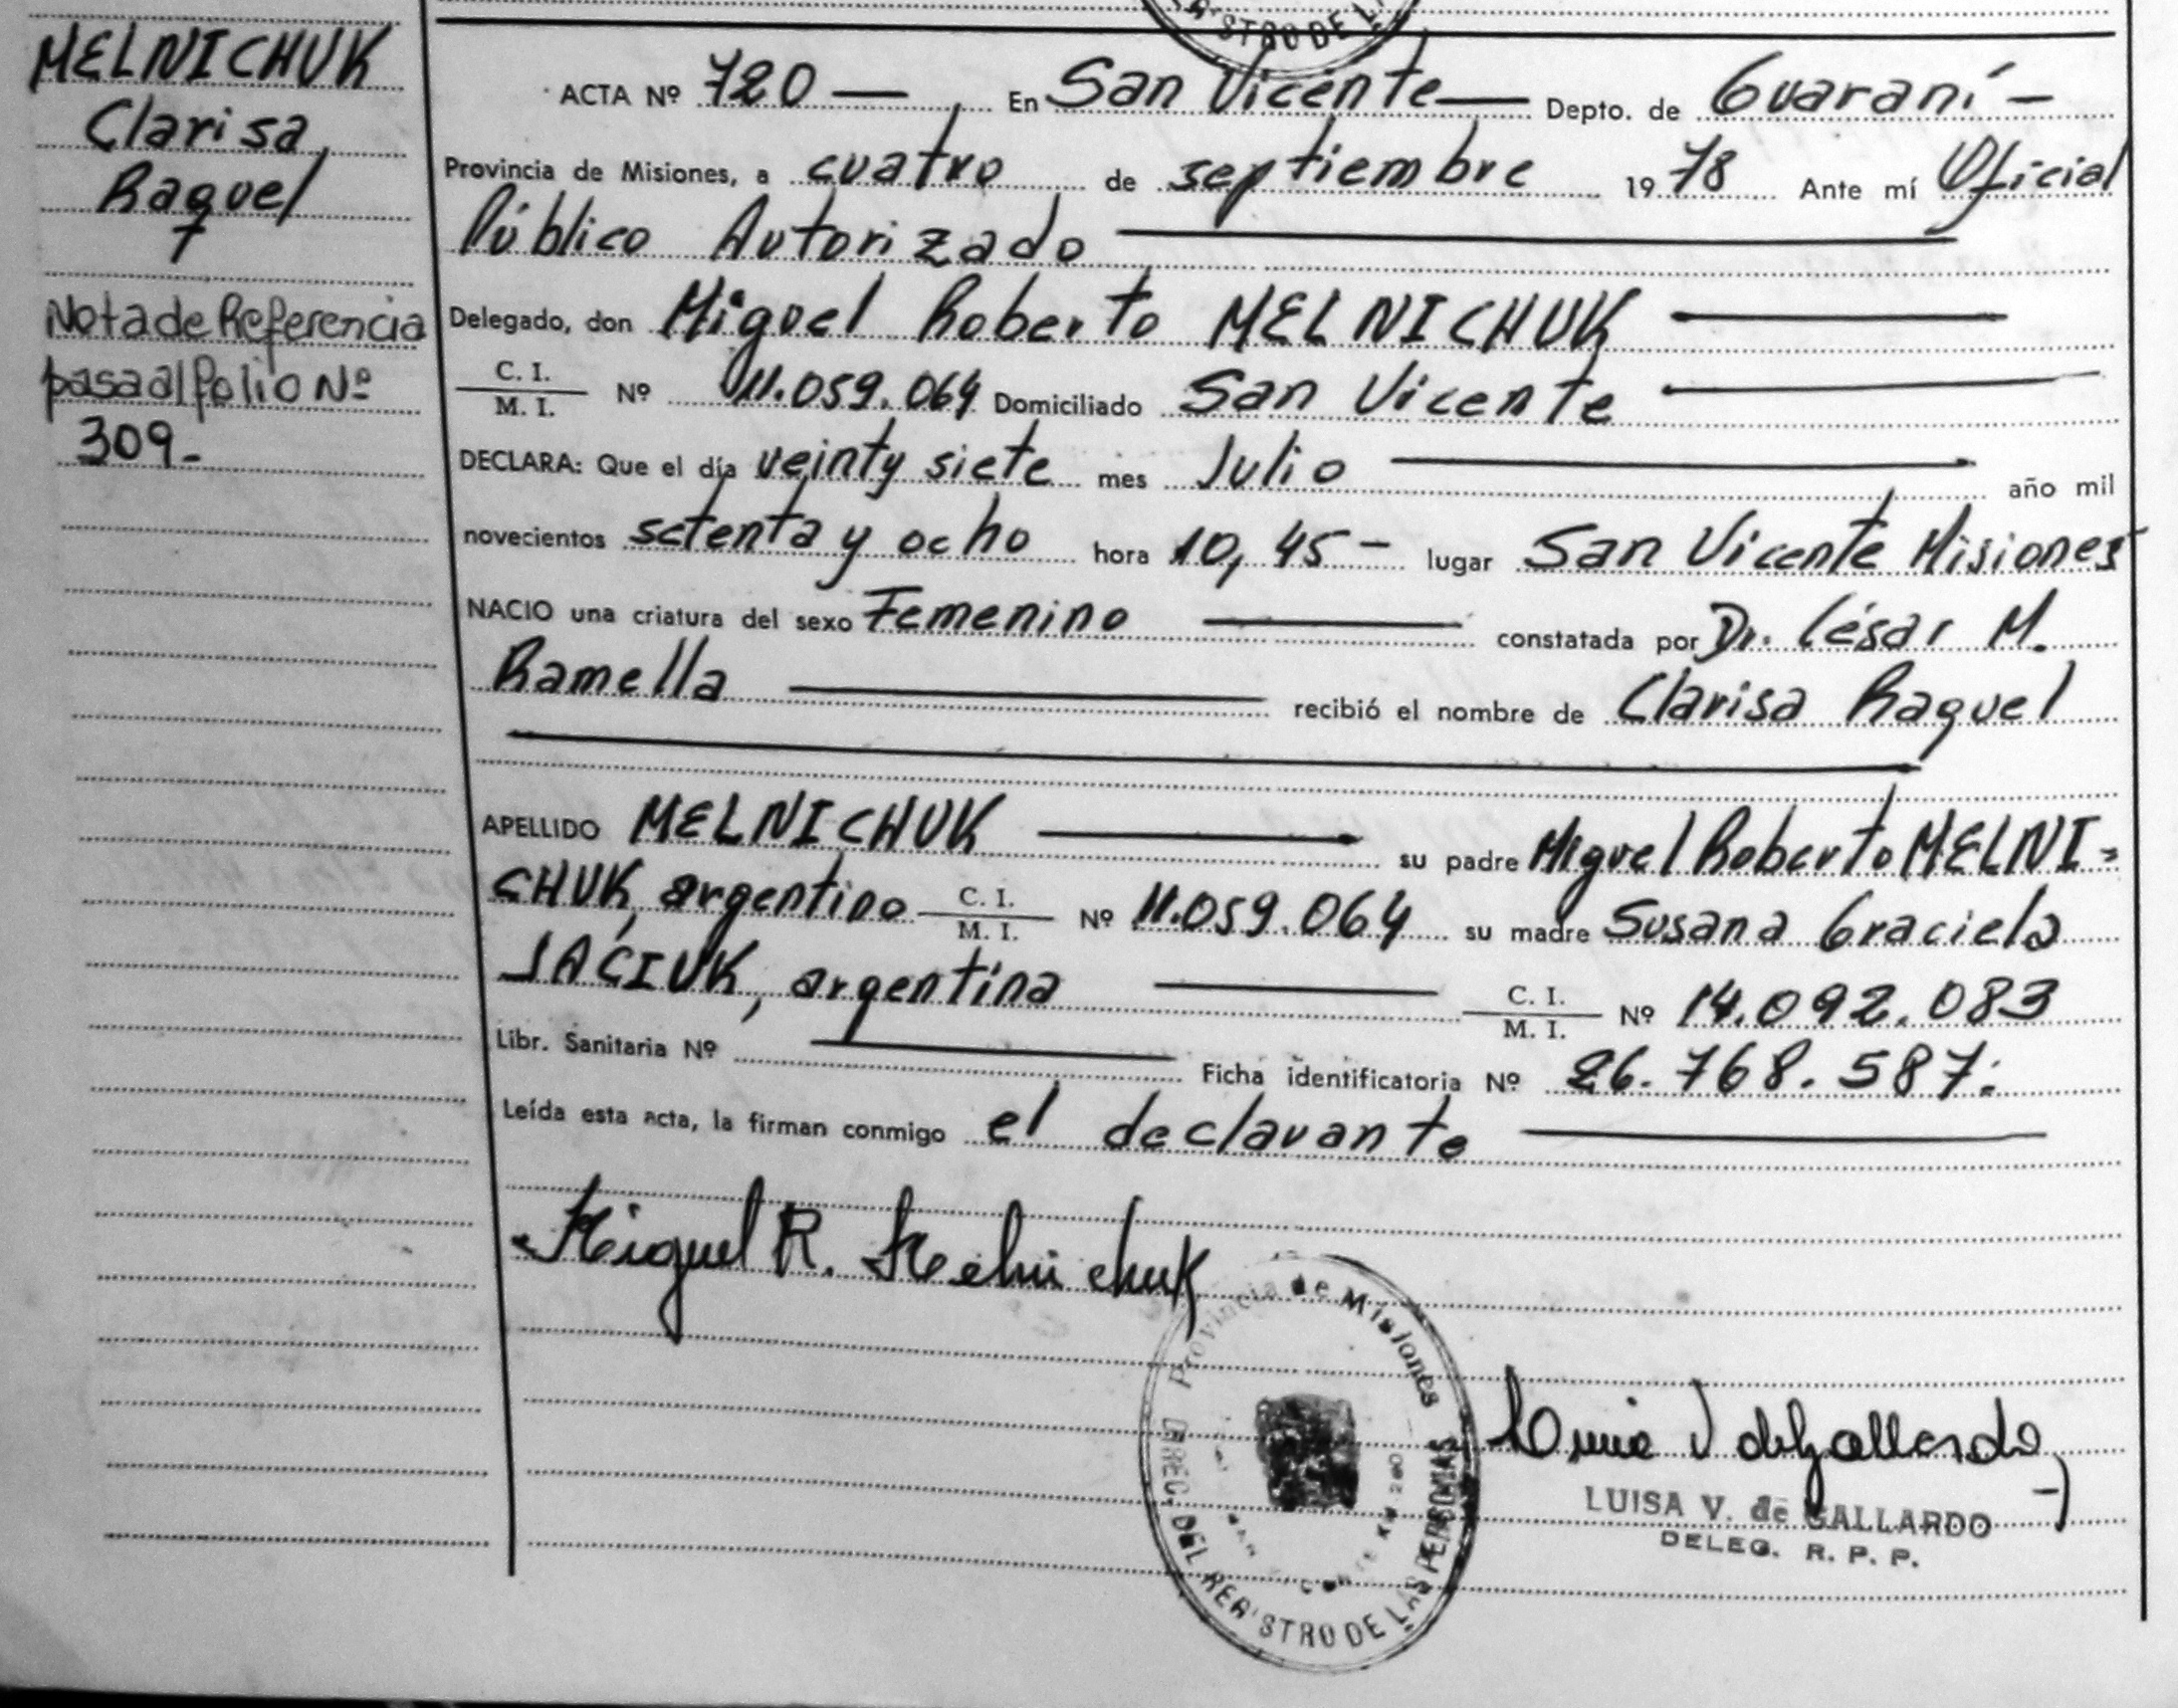 MELNICHUK
Clarisa
Raquel
Nota de Referencia
pasa al folio Nº
309-
STRO DE L
ACTA Nº 720 — En San Vicente — Depto. de Guaraní -
Provincia de Misiones, a cuatro de septiembre 1978 Ante mí Oficial
Público Autorizado
Delegado, don Miguel Roberto MELNICHUK
C. I. / M. I. Nº 11.059.064 Domiciliado San Vicente
DECLARA: Que el día veinty siete mes Julio año mil
novecientos setenta y ocho hora 10,45 - lugar San Vicente Misiones
NACIO una criatura del sexo Femenino constatada por Dr. César M.
Ramella recibió el nombre de Clarisa Raquel
APELLIDO MELNICHUK su padre Miguel Roberto MELNI-
CHUK, argentino C. I. / M. I. Nº 11.059.064 su madre Susana Graciela
JACIUK, argentina C. I. / M. I. Nº 14.092.083
Libr. Sanitaria Nº Ficha identificatoria Nº 26.768.587.
Leída esta acta, la firman conmigo el declarante
Miguel R. Melnichuk
Provincia de Misiones
DIREC. DEL REGISTRO DE LAS PERSONAS
LUISA V. de GALLARDO
DELEG. R. P. P.